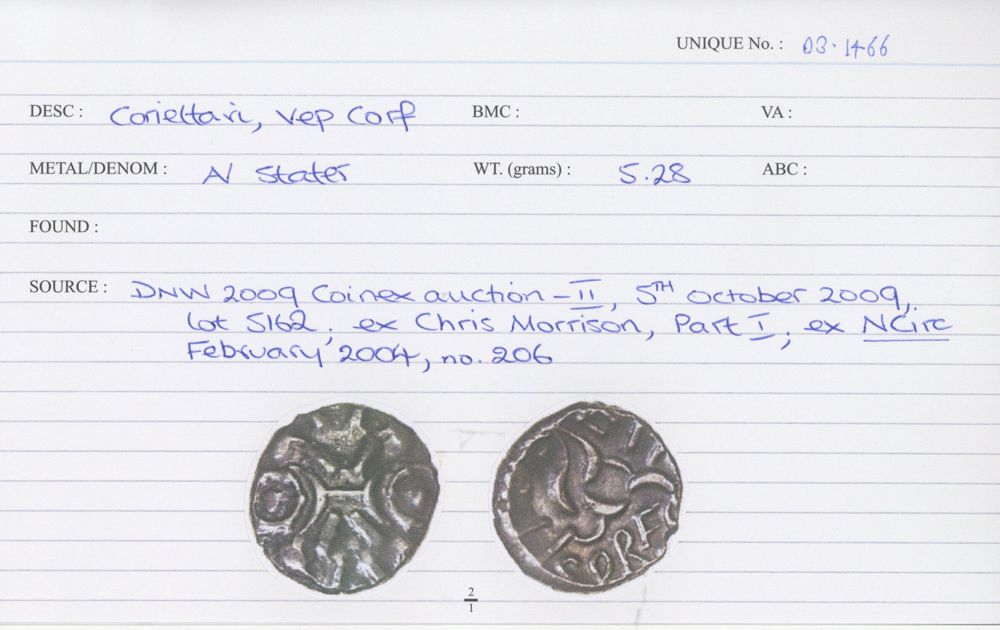 UNIQUE No. : 03·1466
DESC : Corieltavi, Vep Corf BMC : VA :
METAL/DENOM : AV Stater WT. (grams) : 5.28 ABC :
FOUND :
SOURCE : DNW 2009 Coinex auction – II, 5TH October 2009,
lot 5162, ex Chris Morrison, Part I, ex NCirc
February 2004, no. 206
CORF
2
1